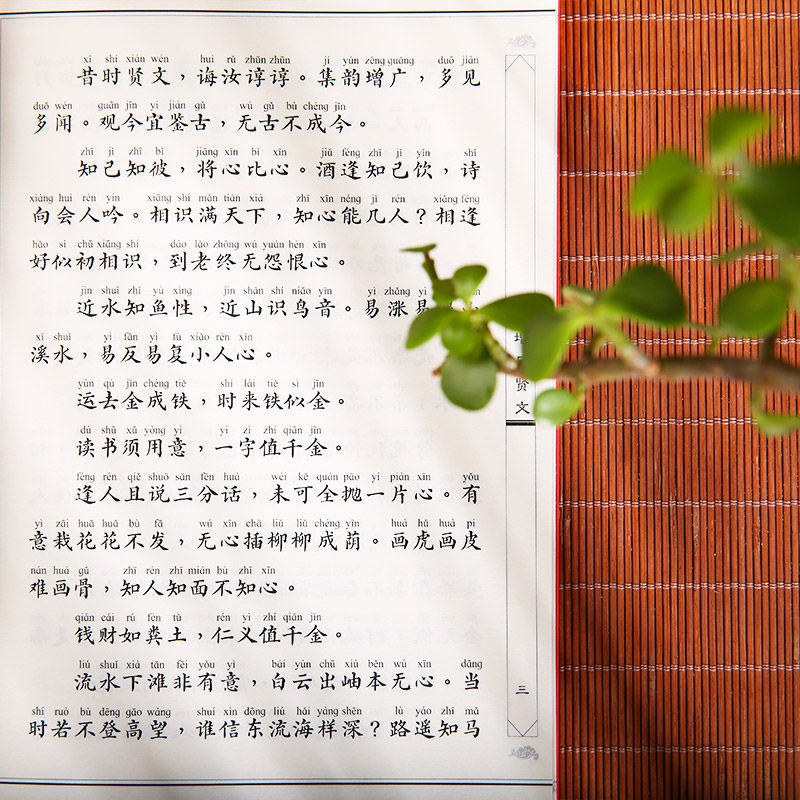 xī shí xián wén huì rǔ zhūn zhūn jí yùn zēng guǎng duō jiàn
昔时贤文，诲汝谆谆。集韵增广，多见
duō wén guān jīn yí jiàn gǔ wú gǔ bù chéng jīn
多闻。观今宜鉴古，无古不成今。
zhī jǐ zhī bǐ jiāng xīn bǐ xīn jiǔ féng zhī jǐ yǐn shī
知己知彼，将心比心。酒逢知己饮，诗
xiàng huì rén yín xiāng shí mǎn tiān xià zhī xīn néng jǐ rén xiāng féng
向会人吟。相识满天下，知心能几人？相逢
hǎo sì chū xiāng shí dào lǎo zhōng wú yuàn hèn xīn
好似初相识，到老终无怨恨心。
jìn shuǐ zhī yú xìng jìn shān shí niǎo yīn yì zhǎng yì
近水知鱼性，近山识鸟音。易涨易
xī shuǐ yì fǎn yì fù xiǎo rén xīn
溪水，易反易复小人心。
yùn qù jīn chéng tiě shí lái tiě sì jīn
运去金成铁，时来铁似金。
dú shū xū yòng yì yí zì zhí qiān jīn
读书须用意，一字值千金。
féng rén qiě shuō sān fēn huà wèi kě quán pāo yí piàn xīn yǒu
逢人且说三分话，未可全抛一片心。有
yì zāi huā huā bù fā wú xīn chā liǔ liǔ chéng yīn huà hǔ huà pí
意栽花花不发，无心插柳柳成荫。画虎画皮
nán huà gǔ zhī rén zhī miàn bù zhī xīn
难画骨，知人知面不知心。
qián cái rú fèn tǔ rén yì zhí qiān jīn
钱财如粪土，仁义值千金。
liú shuǐ xià tān fēi yǒu yì bái yún chū xiù běn wú xīn dāng
流水下滩非有意，白云出岫本无心。当
shí ruò bù dēng gāo wàng shuí xìn dōng liú hǎi yàng shēn lù yáo zhī mǎ
时若不登高望，谁信东流海样深？路遥知马
贤文
三